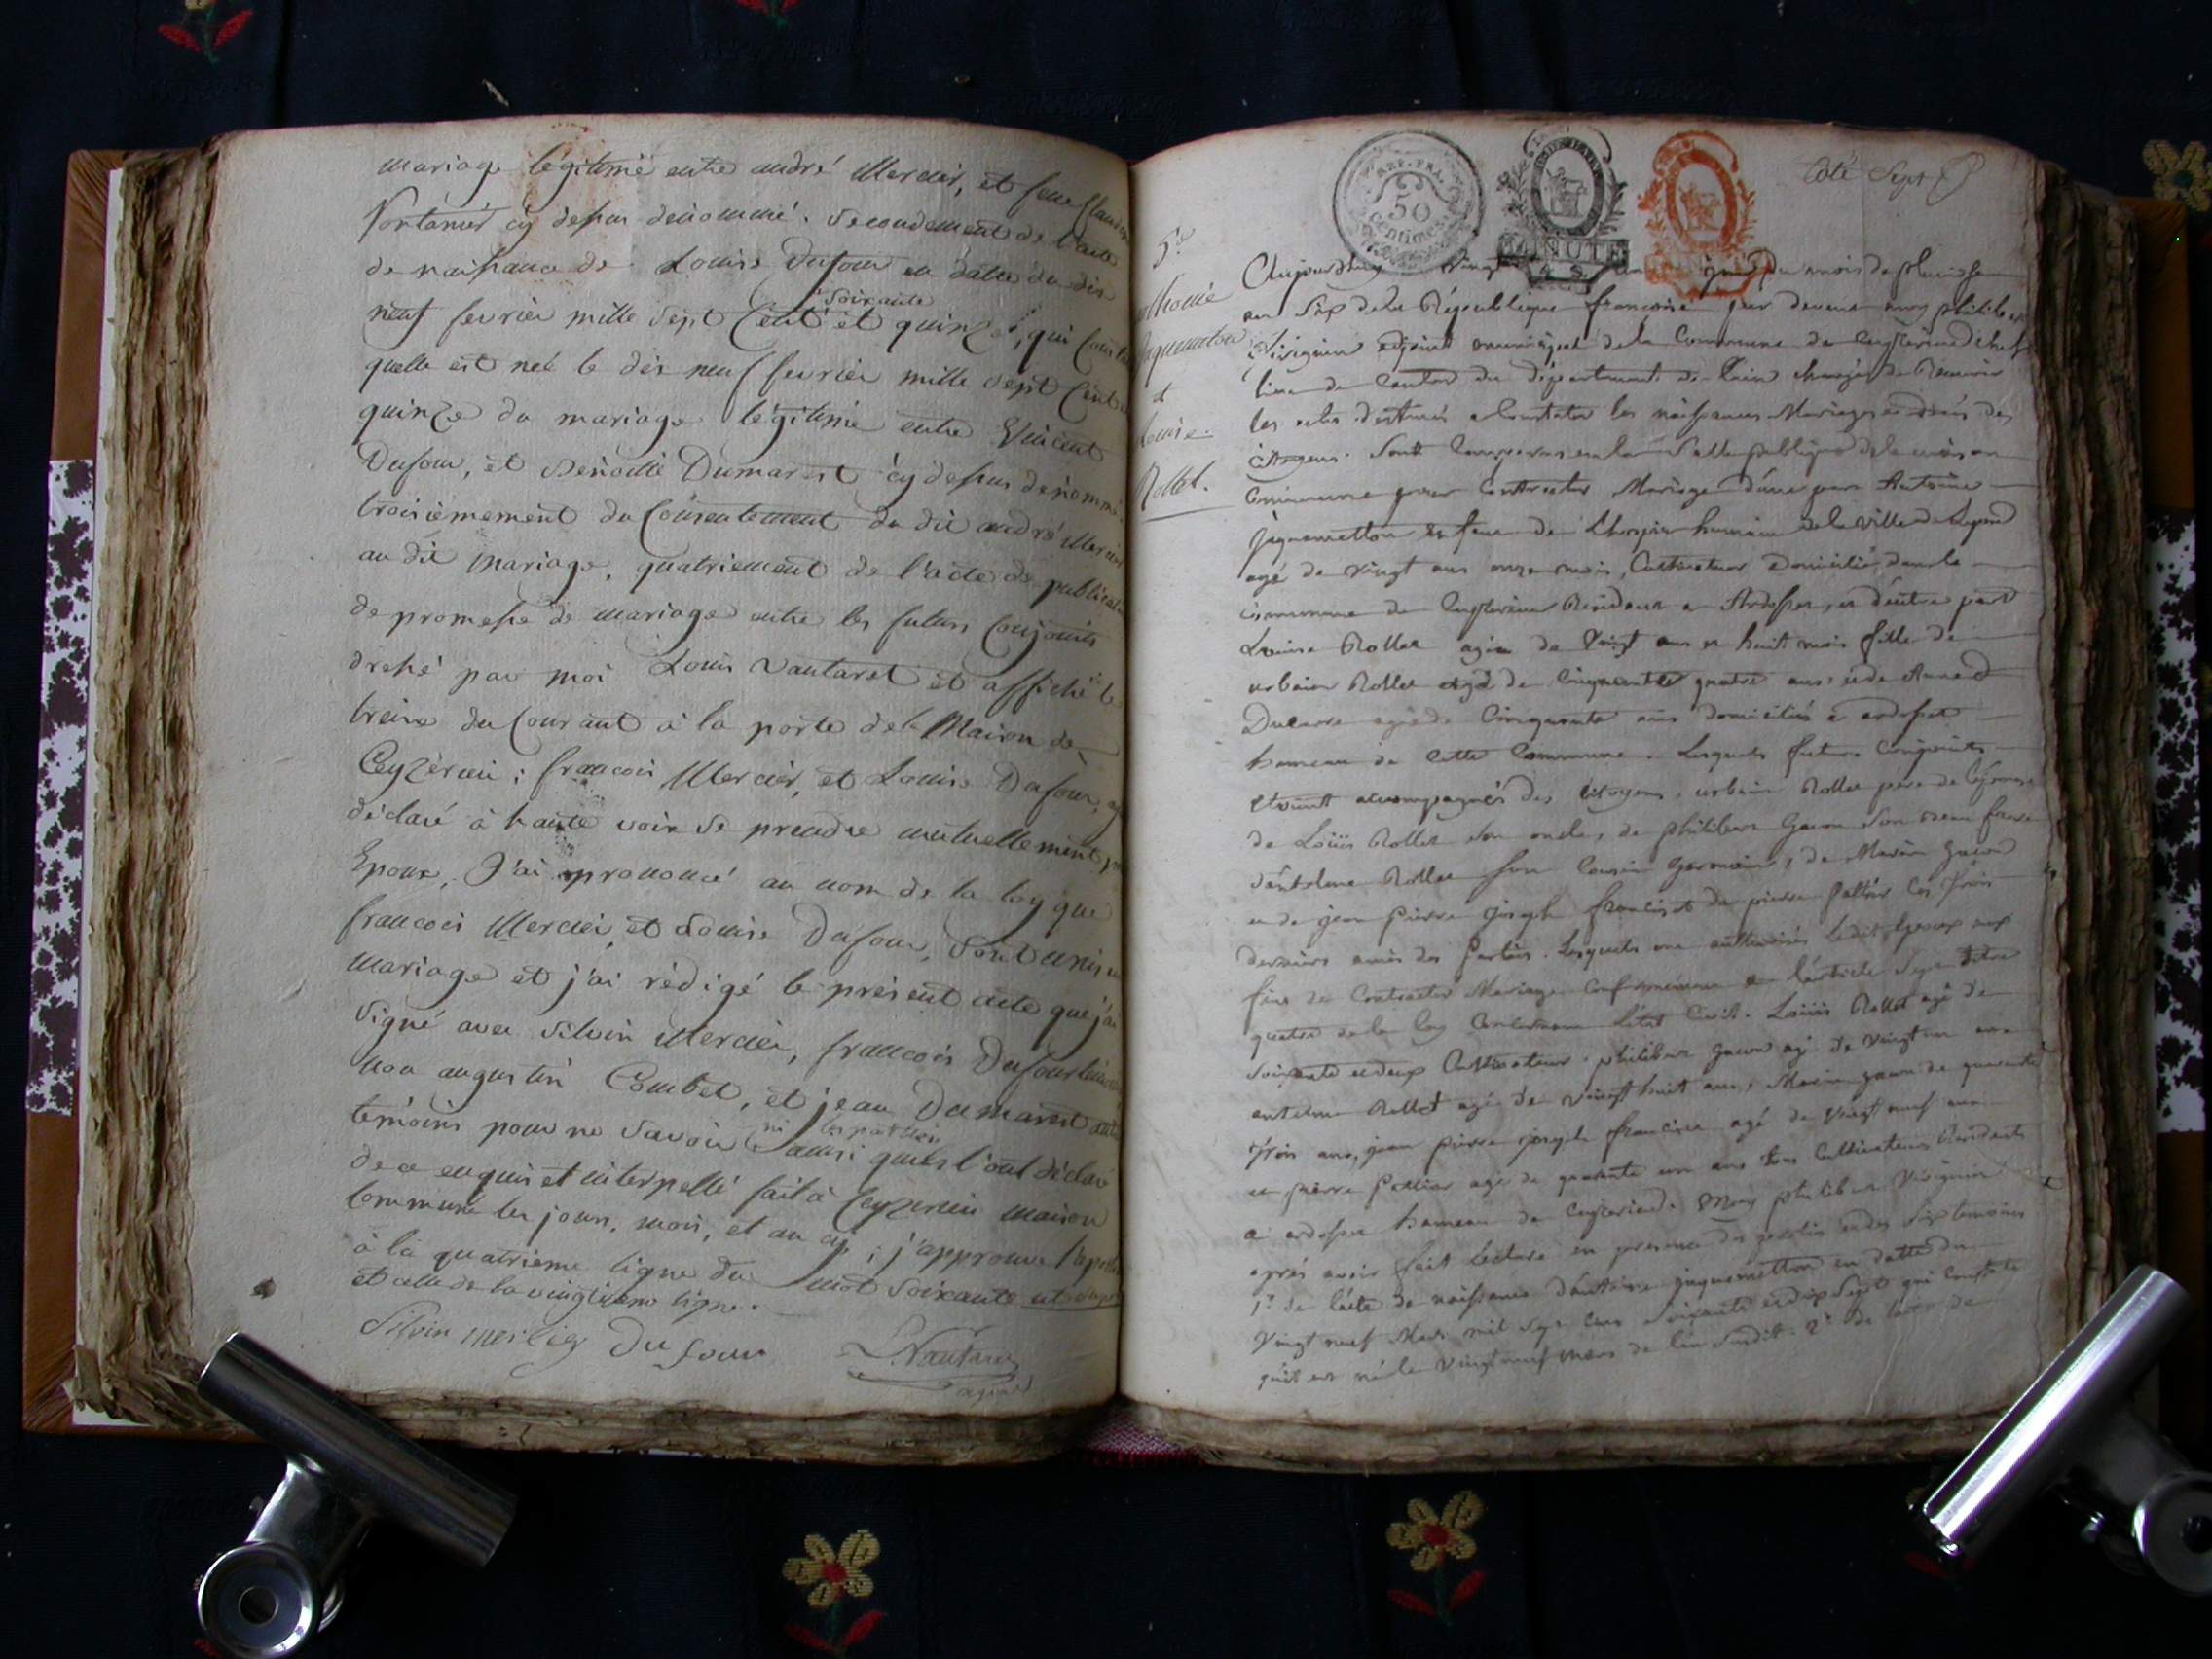 mariage légitime entre andré Mercier, et feue Claudine
fontanier cy dessus dénommé. Secondement de l'acte
de naissance de Louise Dufour en datte du dix
soixante
neuf fevrier mille sept Cent et quinze, qui Const
quelle est neé le dix neuf fevrier mille sept Cent
quinze du mariage légitime entre Vincent
Dufour, et Benoitte Dumarest cy dessus dénommé.
troisièmement du Consentement du dit andré Mercier
au dit mariage, quatriement de l'acte de publication
de promesse de mariage entre les futurs Conjoints
dressé par moi Louis Vautaret et affiché le
treize du Courant à la porte de la Maison de
Ceyzerieu; francois Mercier, et Louise Dufour,
déclaré à haute voix se prendre mutuellement
Epoux, J'ai prononcé au nom de la loy que
francois Mercier, et Louise Dufour, Sont unis en
mariage et j'ai rédigé le présent acte que j'ai
signé avec silvin Mercier, francois Dufour
non augustin Combet, et jean Dumarest
ni les parties
temoins pour ne savoir ainsi quils l'ont déclaré
de ce enquis et interpellé fait à Ceyzerieu maison
Commune les jour, mois, et an cy; j'approuve
à la quatrieme ligne du mot soixante
et celle de la vingtieme ligne.
Silvin mercier Dufour Vautaret
agent
Coté Sept
REP. FRA.
50
Centimes
MINUTE
5e
Jaquemetton
et
Louise
Rollet.
Aujourdhuy vingt mois de pluviose
an Six de la République francoise par devant moy philibert
adjoint municipal de la Commune de Ceyzerieu chef
lieu de Canton du département de Lain chargé de Recevoir
les actes destinés a Constater les naissances Mariages et décés des
Citoyens. Sont Comparus en la Salle publique de la maison
Commune pour Contracter Mariage d'une part Antoine
Jaquemetton de la ville de Lyon
agé de vingt ans onze mois, Cultivateur Domicilié dans la
Commune de Ceyzerieu Résidant a Ardosset, et d'autre part
Louise Rollet agée de Vingt ans et huit mois fille de
urbain Rollet agé de Cinquante quatre ans et de Anne
agée de Cinquante ans domiciliés a ardosset
hameau de Cette Commune. Lesquels futurs Conjoints
étant accompagnés des Citoyens, urbain Rollet pere de l'épouse
de Loüis Rollet son oncle, de philibert Gacon Son beau frere
d'antelme Rollet son Cousin Germain, de Marin Gacon
et de jean pierre joseph et de pierre Pattier Ces trois
derniers amis des Parties. Lesquels ont authorisés Ledit Epoux aux
fins de Contracter Mariage Conformément a l'article Sept titre
quatre de la loy Concernant l'état Civil. Loüis Rollet agé de
Soixante et deux Cultivateur, philibert Gacon agé de vingt ans
antelme Rollet agé de vingt huit ans, Marin gacon de quarante
trois ans, jean pierre joseph agé de vingt neuf ans
et pierre Pattier agé de quarante un ans tous Cultivateurs Residents
a ardosset hameau de Ceyzerieu. Moy philibert
après avoir fait Lecture en presence des parties et des Six temoins
1° de l'acte de naissance d'antoine jaquemetton en datte du
Vingt neuf Mars mil Sept Cent Soixante et dix Sept qui Constate
qu'il est né le vingt neuf mars de l'an Susdit. 2° de l'acte de